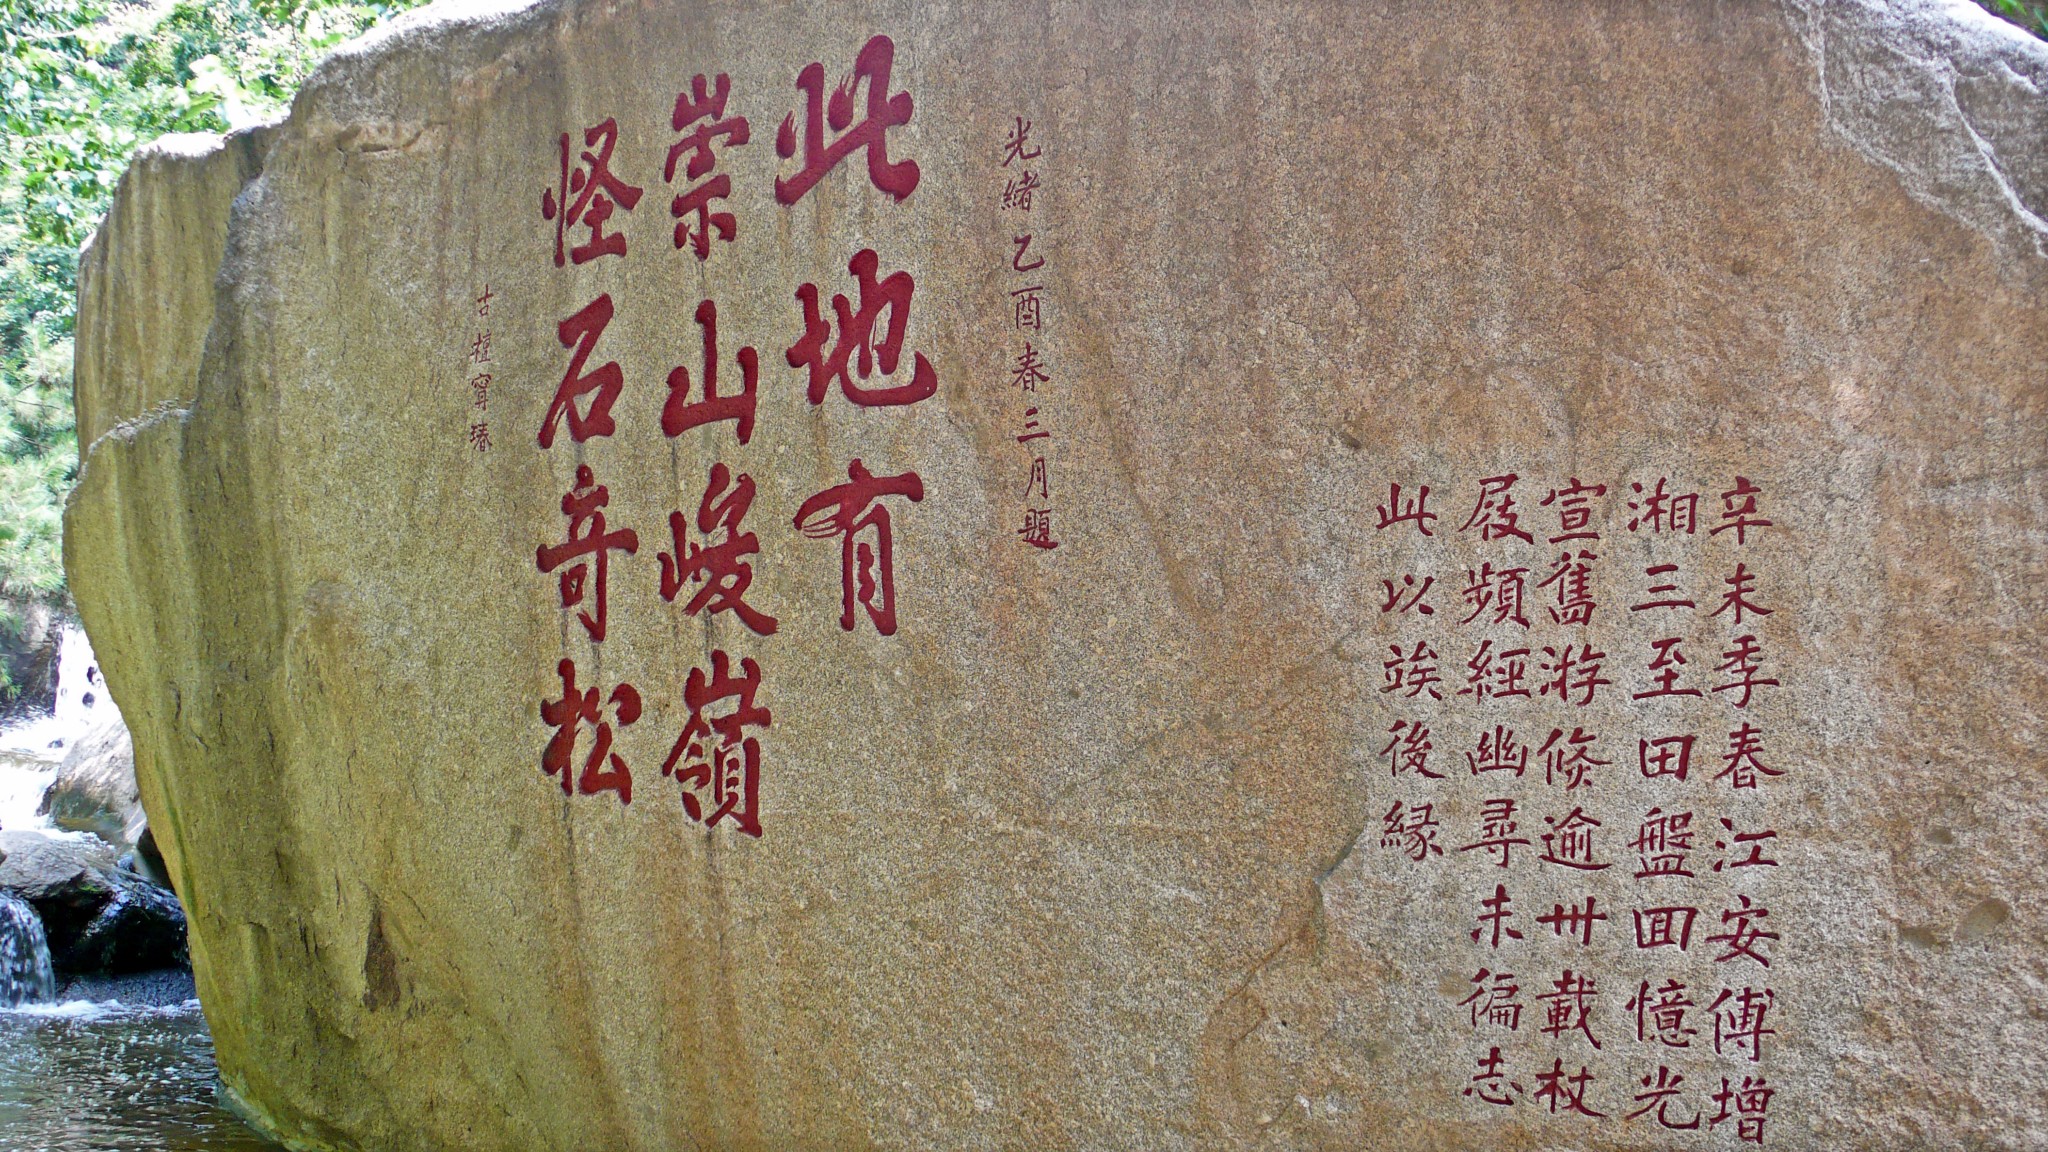 辛未季春江安傅增
湘三至田盤囬憶光
宣舊游倐逾卅載杖
屐頻經幽尋未徧志
此以竢後緣
光緒乙酉春三月題
此地有
崇山峻嶺
怪石奇松
古檀甯琇